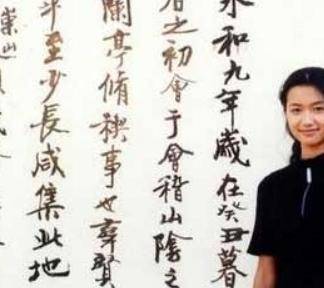 永和九年歲在癸丑暮
春之初會于會稽山陰之
蘭亭脩禊事也羣賢
畢至少長咸集此地
崇山